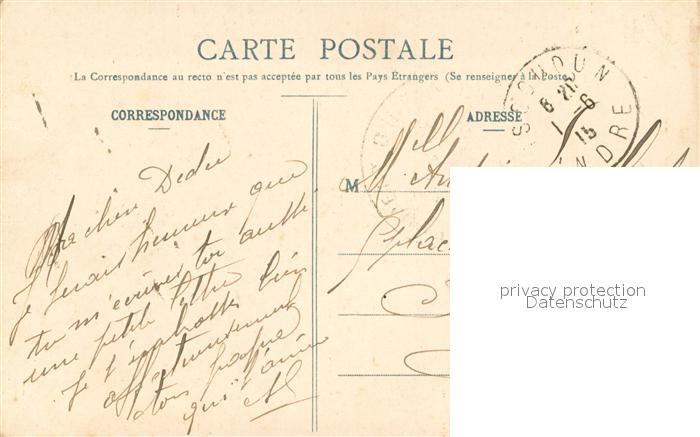 CARTE POSTALE
La Correspondance au recto n'est pas acceptée par tous les Pays Étrangers (Se renseigner à la Poste
CORRESPONDANCE
ADRESSE
SSOUDUN
6 21
1 - 6
15
NDRE
Ma chère Dédée
Je serais heureux que
tu m'écrives toi aussi
une petite lettre
Je t'embrasse bien
affectueusement
ton
qui t'aime
M
Mell
Place
privacy protection
Datenschutz